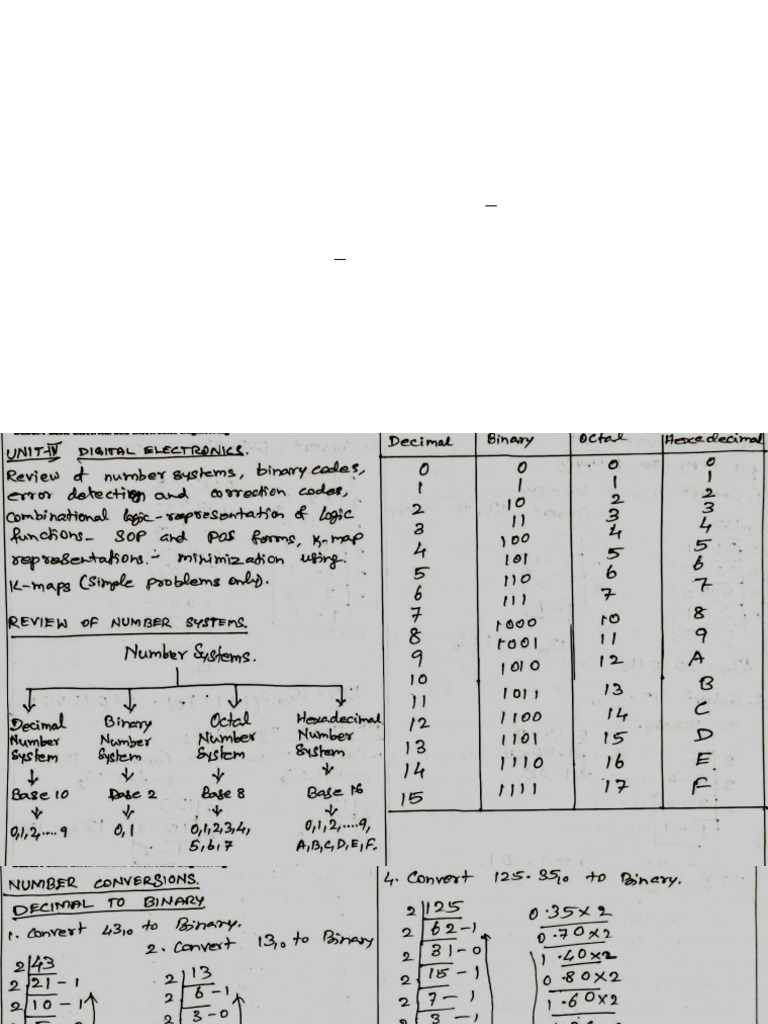 UNIT-IV DIGITAL ELECTRONICS.
Review of number systems, binary codes,
error detection and correction codes,
Combinational logic - representation of logic
functions - SOP and POS forms, K-map
representations - minimization using
K-maps (Simple problems only).
REVIEW OF NUMBER SYSTEMS.
Number Systems.
Decimal Number System
Binary Number System
Octal Number System
Hexadecimal Number System
Base 10 Base 2 Base 8 Base 16
0,1,2....9 0,1 0,1,2,3,4, 0,1,2,....9,
5,6,7 A,B,C,D,E,F.
Decimal Binary Octal Hexedecimal
0 0 0 0
1 1 1 1
2 10 2 2
3 11 3 3
4 100 4 4
5 101 5 5
6 110 6 6
7 111 7 7
8 1000 10 8
9 1001 11 9
10 1010 12 A
11 1011 13 B
12 1100 14 C
13 1101 15 D
14 1110 16 E
15 1111 17 F
NUMBER CONVERSIONS.
DECIMAL TO BINARY
1. Convert 43₁₀ to Binary.
2. Convert 13₁₀ to Binary
2 43
2 21 - 1
2 10 - 1
2 13
2 6 - 1
2 3 - 0
4. Convert 125.35₁₀ to Binary.
2 125
2 62 - 1
2 31 - 0
2 15 - 1
2 7 - 1
2 3 - 1
0.35 × 2
0.70 × 2
1.40 × 2
0.80 × 2
1.60 × 2